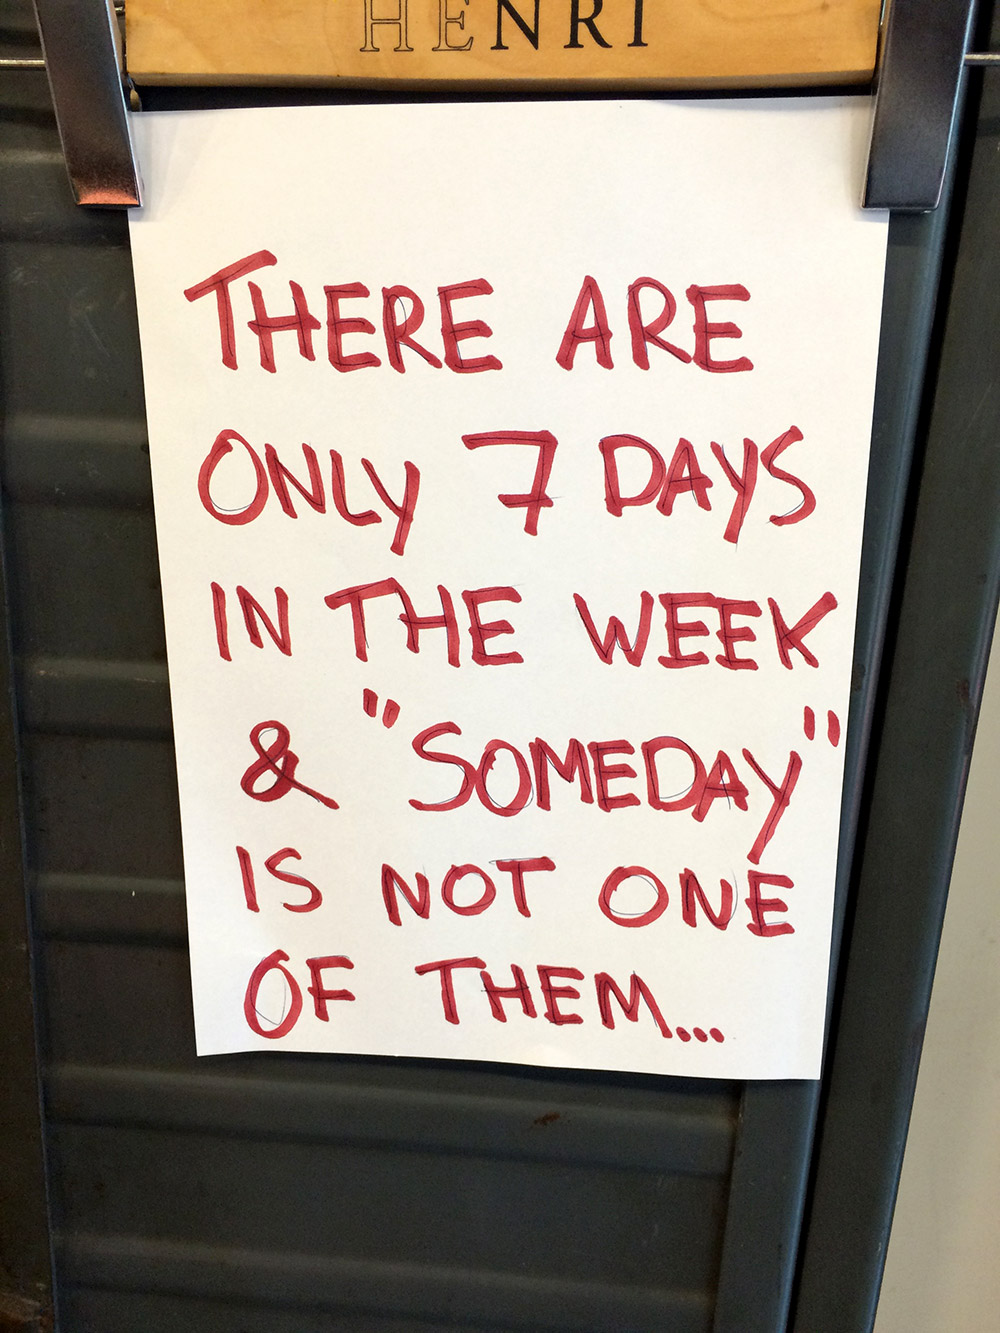 HENRI
THERE ARE
ONLY 7 DAYS
IN THE WEEK
& "SOMEDAY"
IS NOT ONE
OF THEM...